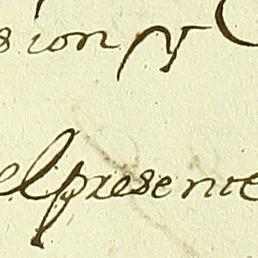 sion y
el presente